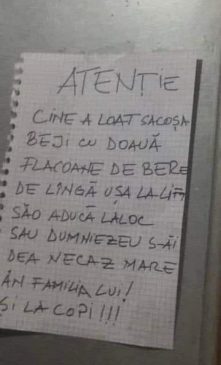 ATENȚIE
CINE A LOAT SACOȘA
BEJI CU DOAUĂ
FLACOANE DE BERE
DE LINGĂ UȘA LA LIFT
SĂO ADUCĂ LALOC
SAU DUMNIEZEU S-ĂI
DEA NECAZ MARE
ÂN FAMILIA LUI!
ȘI LA COPI!!!